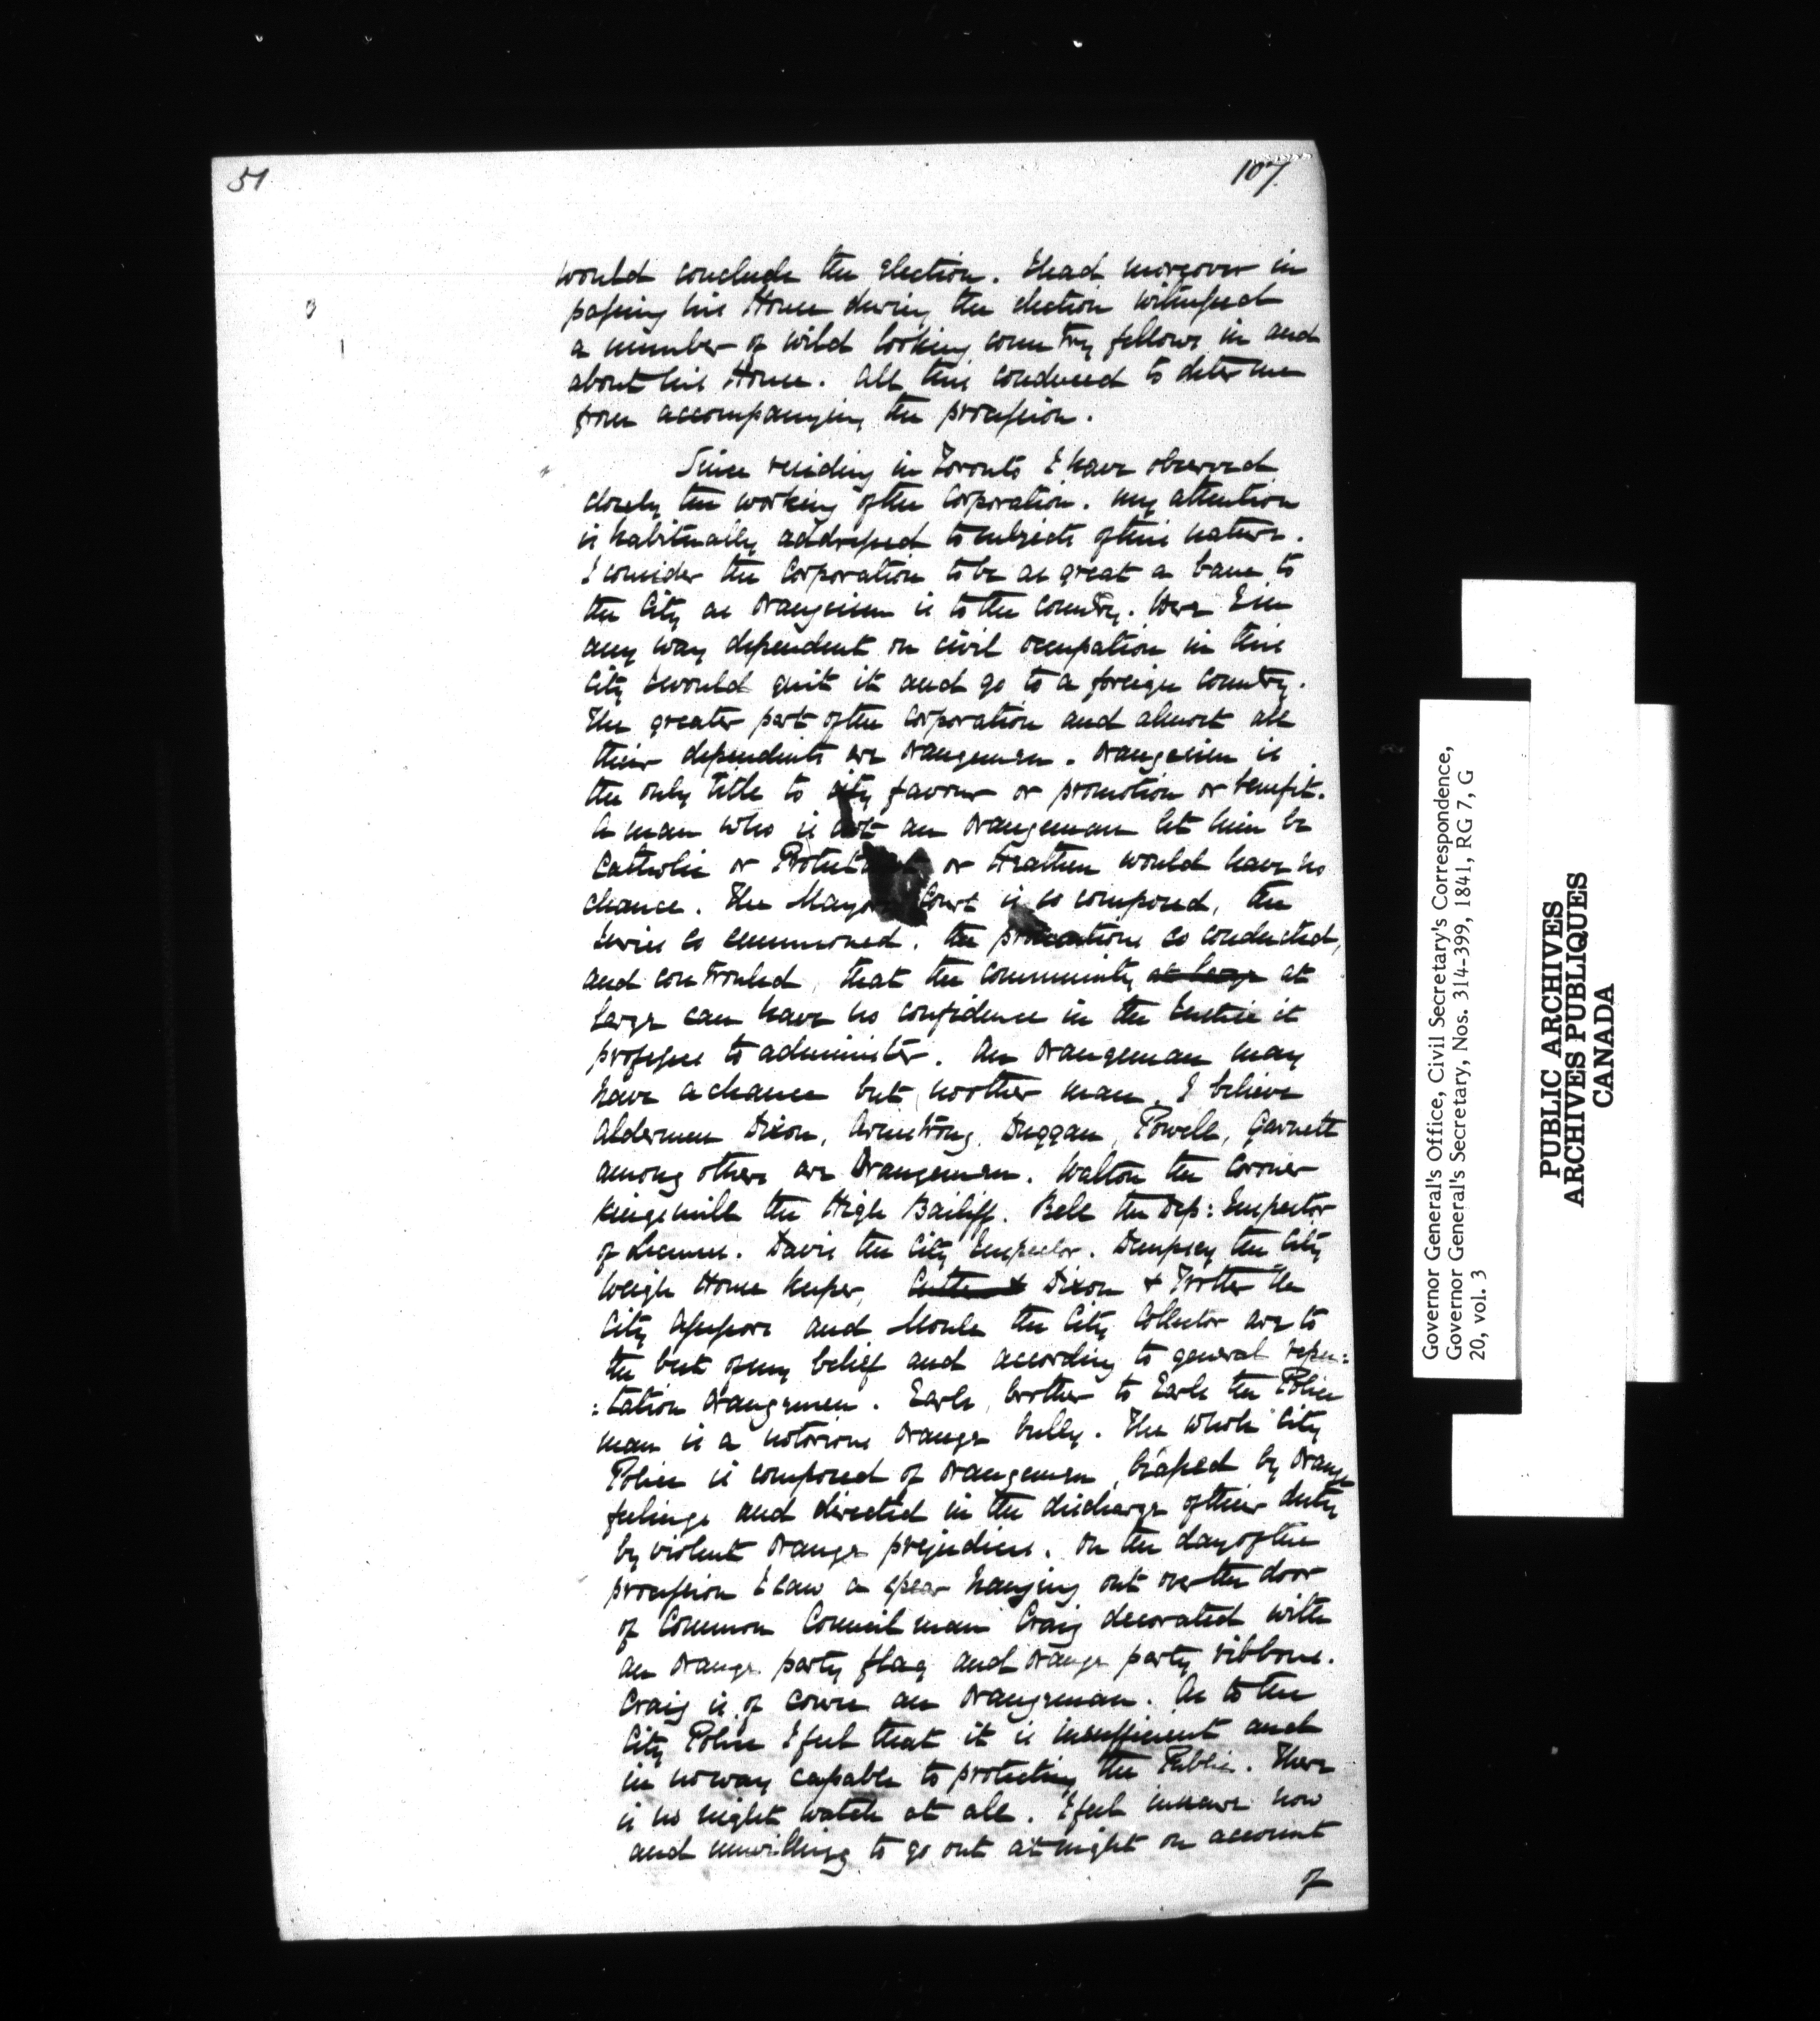 51
107
would conclude the Election. I had moreover in
passing his House during the election witnessed
a number of wild looking country fellows in and
about his House. All this conduced to deter me
from accompanying the procession.
Since residing in Toronto I have observed
closely the working of the Corporation. My attention
is habitually addressed to subjects of this nature.
I consider the Corporation to be as great a bane to
the City as Orangeism is to the Country. Were I in
any way dependent on civil occupation in this
City I would quit it and go to a foreign Country.
The greater part of the Corporation and almost all
their dependents are Orangemen. Orangeism is
the only title to city favour or promotion or benefit.
A man who is not an Orangeman let him be
Catholic or Protestant or Heathen would have no
chance. The Mayors Court is so composed, the
Juries so summoned, the prosecutions so conducted,
and controuled, that the community at large at
large can have no confidence in the Justice it
professes to administer. An Orangeman may
have a chance but no other man. I believe
Aldermen Dixon, Armstrong, Duggan, Powell, Garnett
among others are Orangemen. Walton the Coroner
Kingsmill the High Bailiff. Bell the Dep: Inspector
of Licenses. Davis the City Inspector. Dempsey the City
Weigh House Keeper, Dixon & Trotter the
City Assessors and Moule the City Collector are to
the best of my belief and according to general repu:
:tation Orangemen. Earls, brother to Earls the Police
man is a notorious Orange bully. The whole City
Police is composed of Orangemen, biassed by Orange
feelings and directed in the discharge of their duty
by violent Orange prejudices. On the day of the
procession I saw a spear hanging out over the door
of Common Councilman Craig decorated with
an Orange party flag and Orange party ribbons.
Craig is of course an Orangeman. As to the
City Police I feel that it is insufficient and
in no way capable to protecting the Public. There
is no night watch at all. I feel insecure now
and unwilling to go out at night on account
of
Governor General's Office, Civil Secretary's Correspondence,
Governor General's Secretary, Nos. 314-399, 1841, RG 7, G
20, vol. 3
PUBLIC ARCHIVES
ARCHIVES PUBLIQUES
CANADA